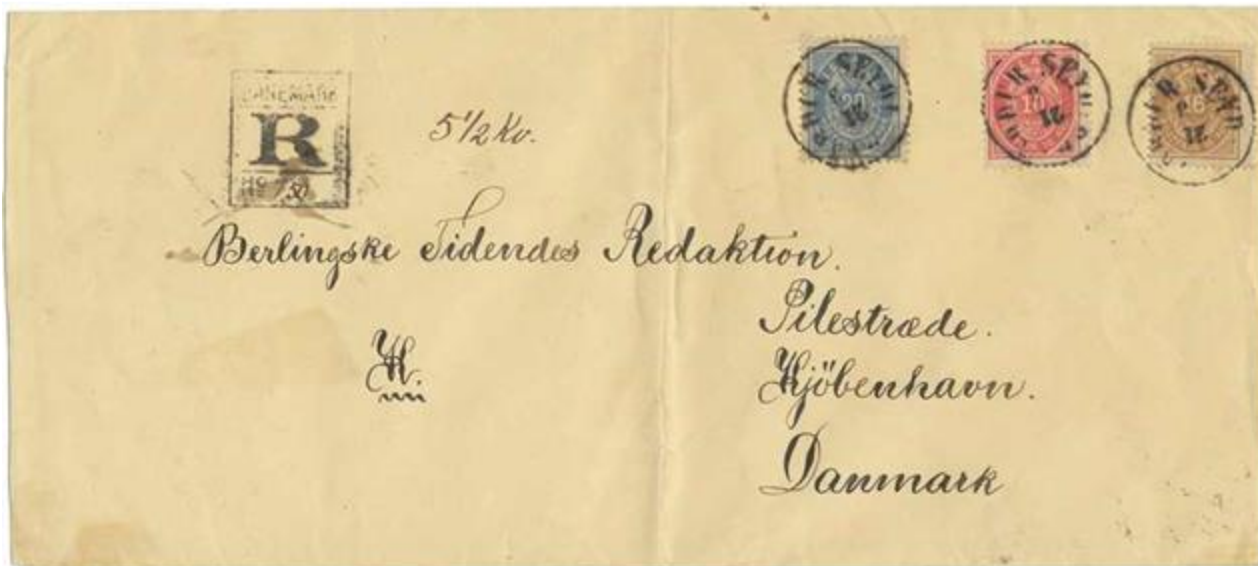 DANEMARK
R
No
5 1/2 Kv.
20
10
16
21
21
21
Berlingske Tidendes Redaktion.
Pilestræde.
Kjöbenhavn.
Danmark